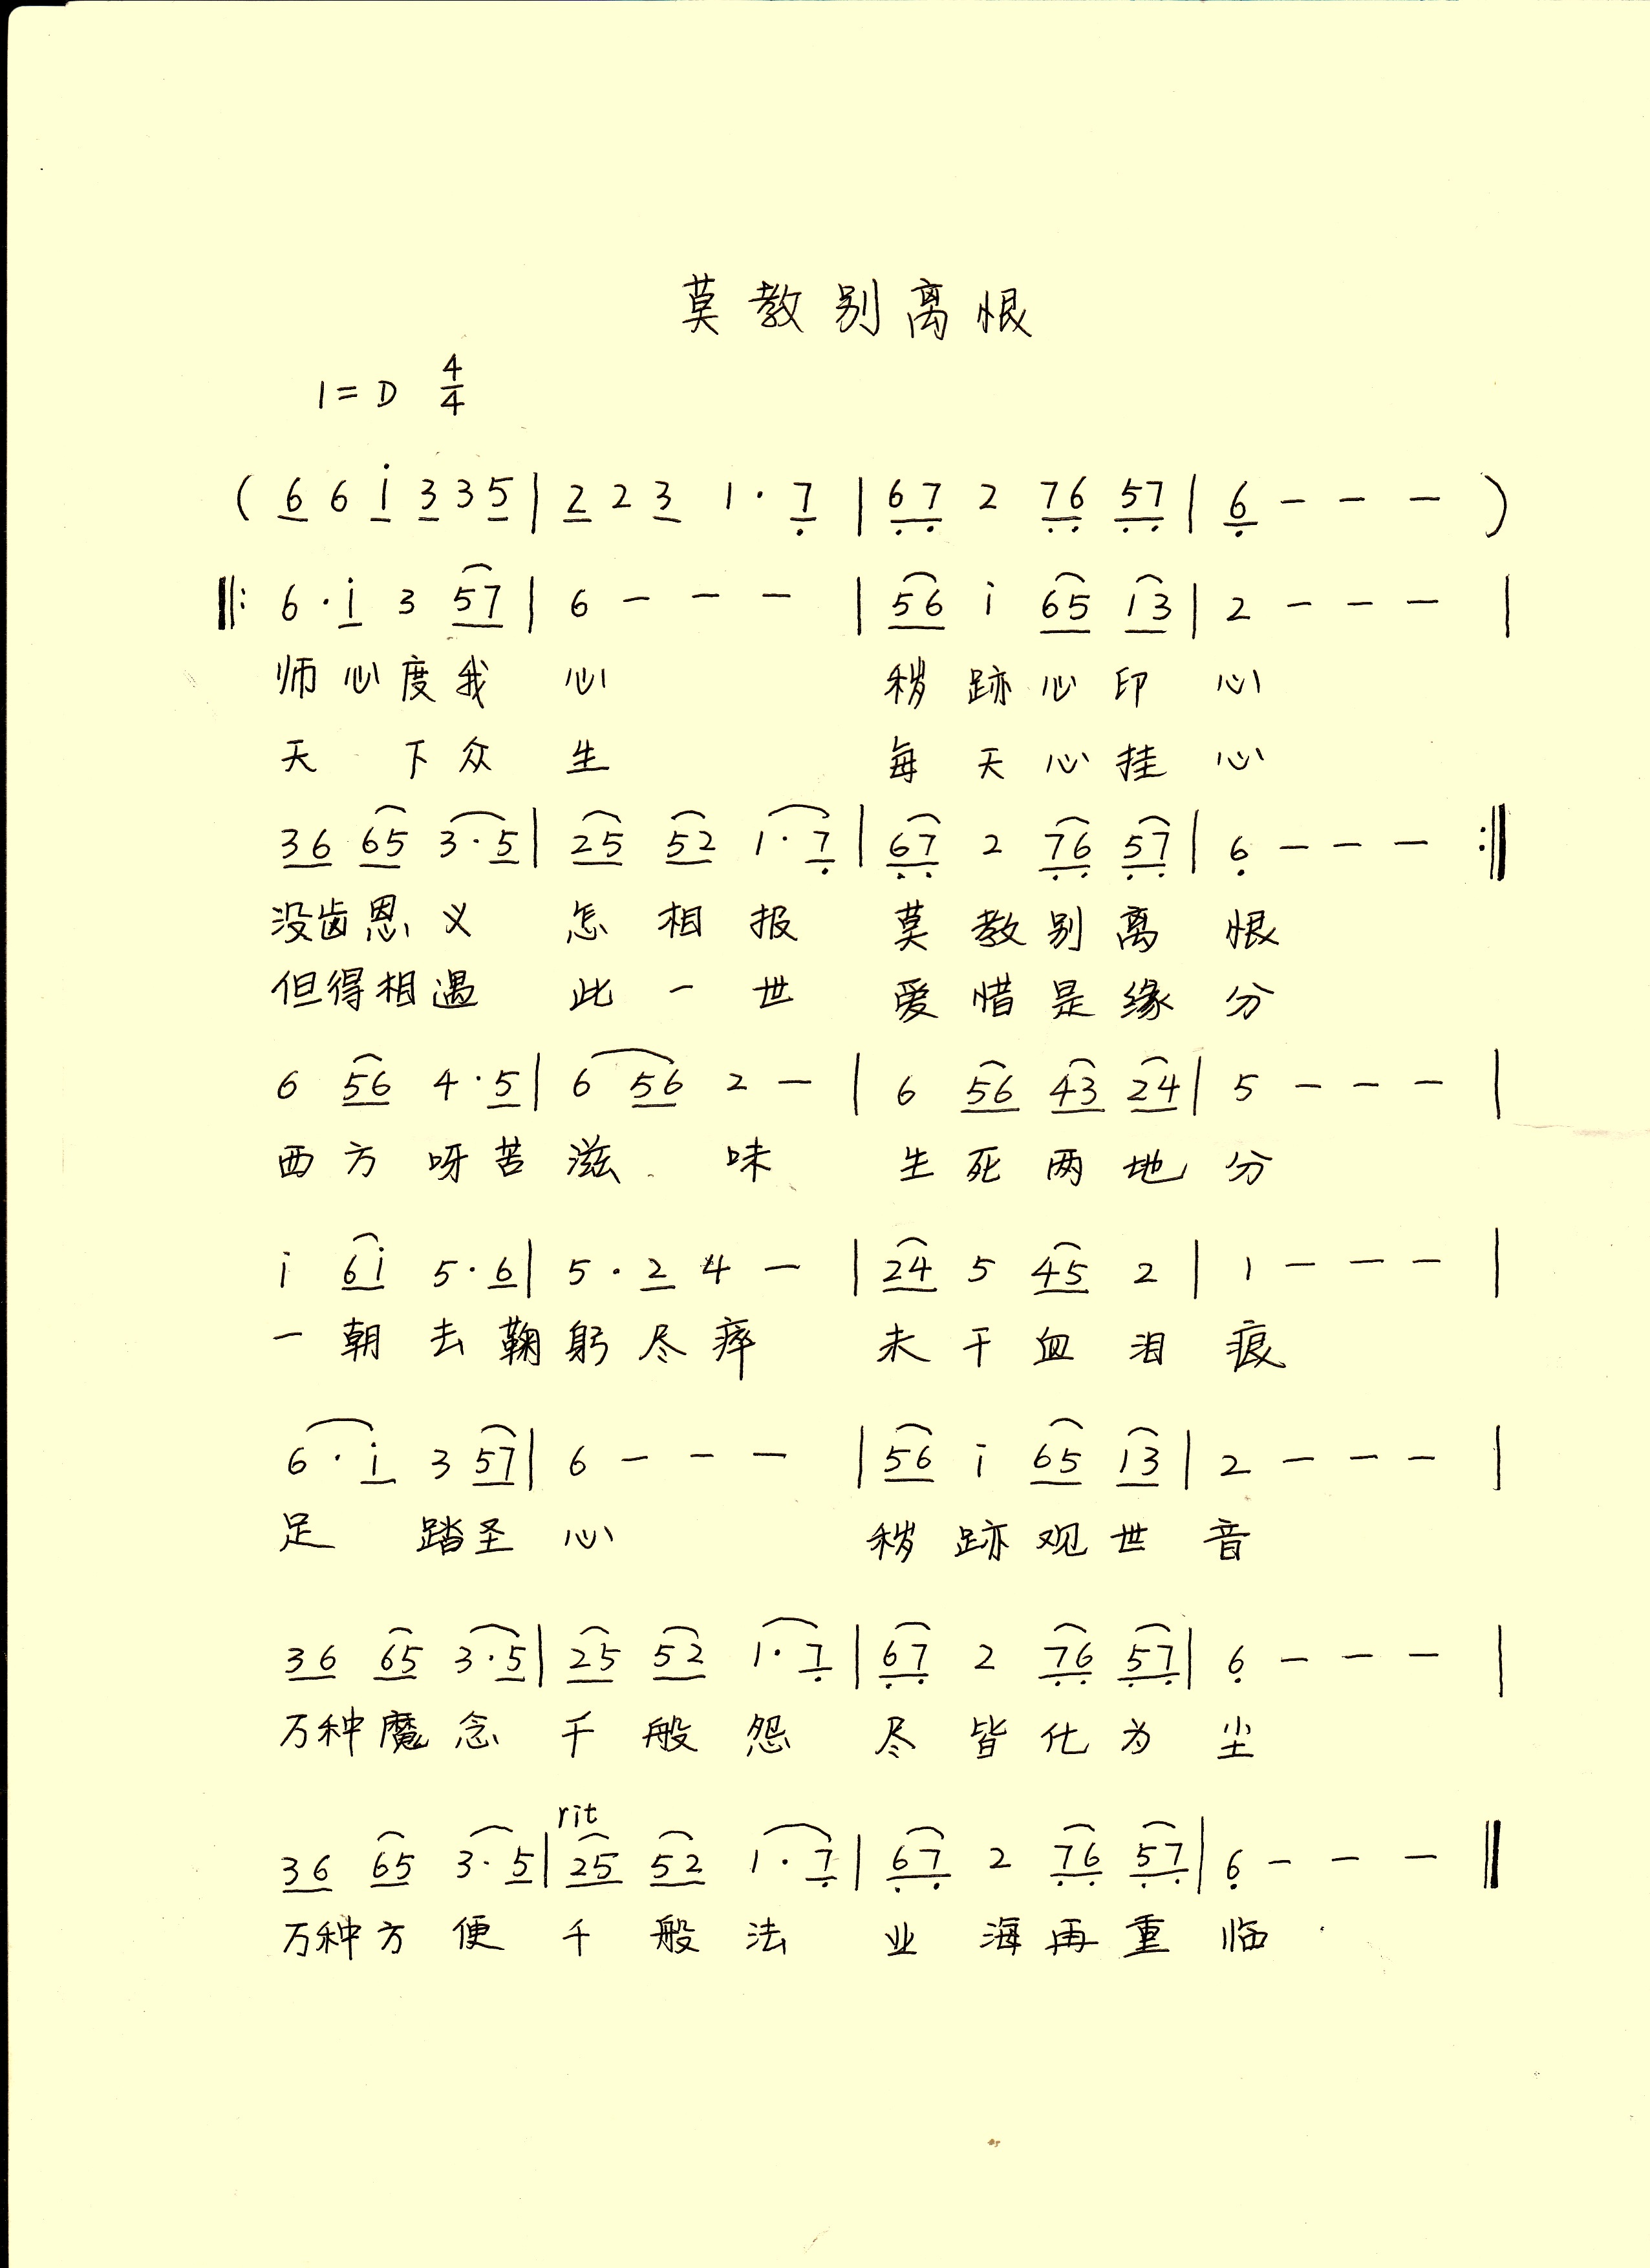 莫教别离恨
1=D 4/4
( 6 6 i 3 3 5 | 2 2 3 1 · 7 | 6 7 2 7 6 5 7 | 6 - - - )
‖: 6 · i 3 5 7 | 6 - - - | 5 6 i 6 5 1 3 | 2 - - - |
师心度我 心 秽跡心印 心
天 下众 生 每天心挂 心
3 6 6 5 3 · 5 | 2 5 5 2 1 · 7 | 6 7 2 7 6 5 7 | 6 - - - :‖
没齿恩义 怎相报 莫教别离 恨
但得相遇 此一世 爱惜是缘 分
6 5 6 4 · 5 | 6 5 6 2 - | 6 5 6 4 3 2 4 | 5 - - - |
西方呀苦 滋 味 生死两地 分
i 6 i 5 · 6 | 5 · 2 4 - | 2 4 5 4 5 2 | 1 - - - |
一朝去鞠 躬尽瘁 未干血泪 痕
6 · i 3 5 7 | 6 - - - | 5 6 i 6 5 1 3 | 2 - - - |
足 踏圣 心 秽跡观世 音
3 6 6 5 3 · 5 | 2 5 5 2 1 · 7 | 6 7 2 7 6 5 7 | 6 - - - |
万种魔念 千般怨 尽皆化为 尘
rit
3 6 6 5 3 · 5 | 2 5 5 2 1 · 7 | 6 7 2 7 6 5 7 | 6 - - - ‖
万种方便 千般法 业海再重 临